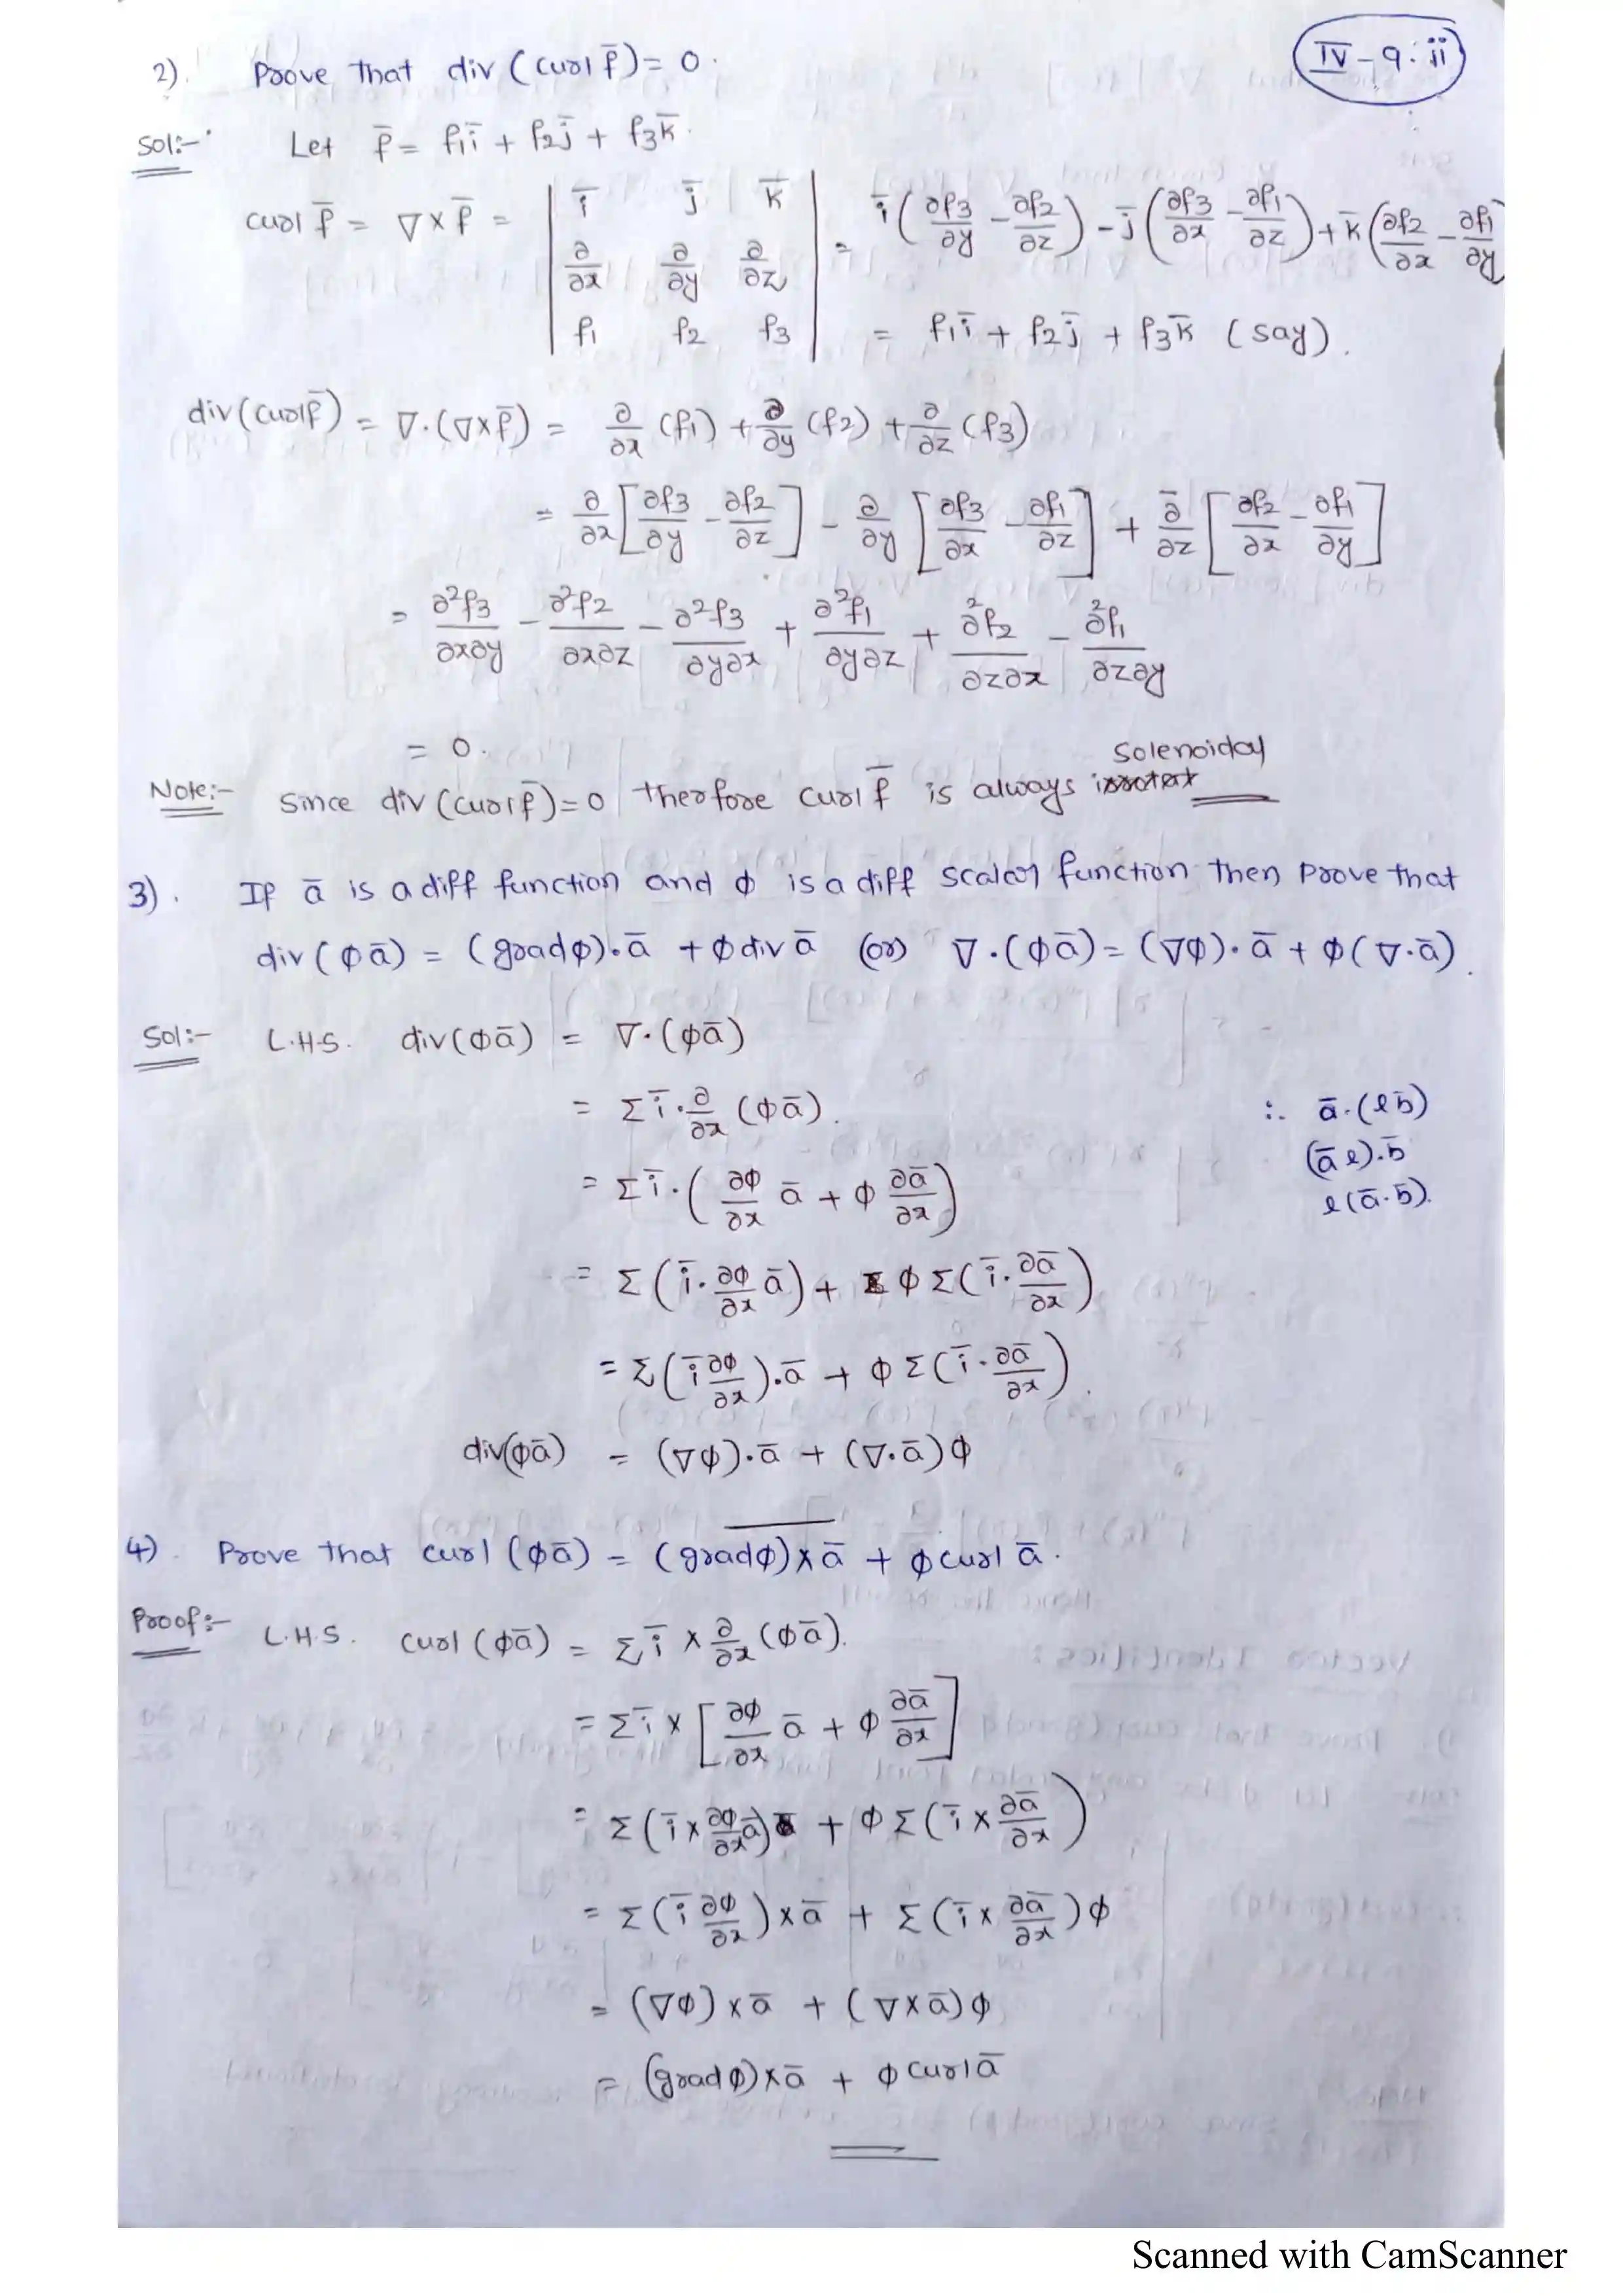 IV-9.ii
2). Prove that div (curl f̄) = 0.
Sol:- Let f̄ = f₁ī + f₂j̄ + f₃k̄.
curl f̄ = ∇×f̄ = | ī j̄ k̄ ; ∂/∂x ∂/∂y ∂/∂z ; f₁ f₂ f₃ | = ī(∂f₃/∂y - ∂f₂/∂z) - j̄(∂f₃/∂x - ∂f₁/∂z) + k̄(∂f₂/∂x - ∂f₁/∂y
= f₁ī + f₂j̄ + f₃k̄ (say).
div(curl f̄) = ∇.(∇×f̄) = ∂/∂x (f₁) + ∂/∂y (f₂) + ∂/∂z (f₃)
= ∂/∂x [∂f₃/∂y - ∂f₂/∂z] - ∂/∂y [∂f₃/∂x - ∂f₁/∂z] + ∂/∂z [∂f₂/∂x - ∂f₁/∂y]
= ∂²f₃/∂x∂y - ∂²f₂/∂x∂z - ∂²f₃/∂y∂x + ∂²f₁/∂y∂z + ∂²f₂/∂z∂x - ∂²f₁/∂z∂y
= 0.
Note:- Since div (curl f̄) = 0 therfore curl f̄ is always Solenoidal
3). If ā is a diff function and φ is a diff scalar function then prove that
div (φā) = (grad φ).ā + φ div ā (or) ∇.(φā) = (∇φ).ā + φ(∇.ā).
Sol:- L.H.S. div(φā) = ∇.(φā)
= Σ ī . ∂/∂x (φā). ∴ ā.(lb̄)
(āl).b̄
= Σ ī . (∂φ/∂x ā + φ ∂ā/∂x) l(ā.b̄).
= Σ (ī . ∂φ/∂x ā) + φ Σ (ī . ∂ā/∂x)
= Σ (ī ∂φ/∂x).ā + φ Σ (ī . ∂ā/∂x).
div(φā) = (∇φ).ā + (∇.ā)φ
4). Prove that curl (φā) = (grad φ)×ā + φ curl ā.
Proof:- L.H.S. curl (φā) = Σ ī × ∂/∂x (φā).
= Σ ī × [∂φ/∂x ā + φ ∂ā/∂x]
= Σ (ī × ∂φ/∂x ā) + φ Σ (ī × ∂ā/∂x)
= Σ (ī ∂φ/∂x) × ā + Σ (ī × ∂ā/∂x) φ
= (∇φ) × ā + (∇×ā) φ
= (grad φ)×ā + φ curl ā
Scanned with CamScanner